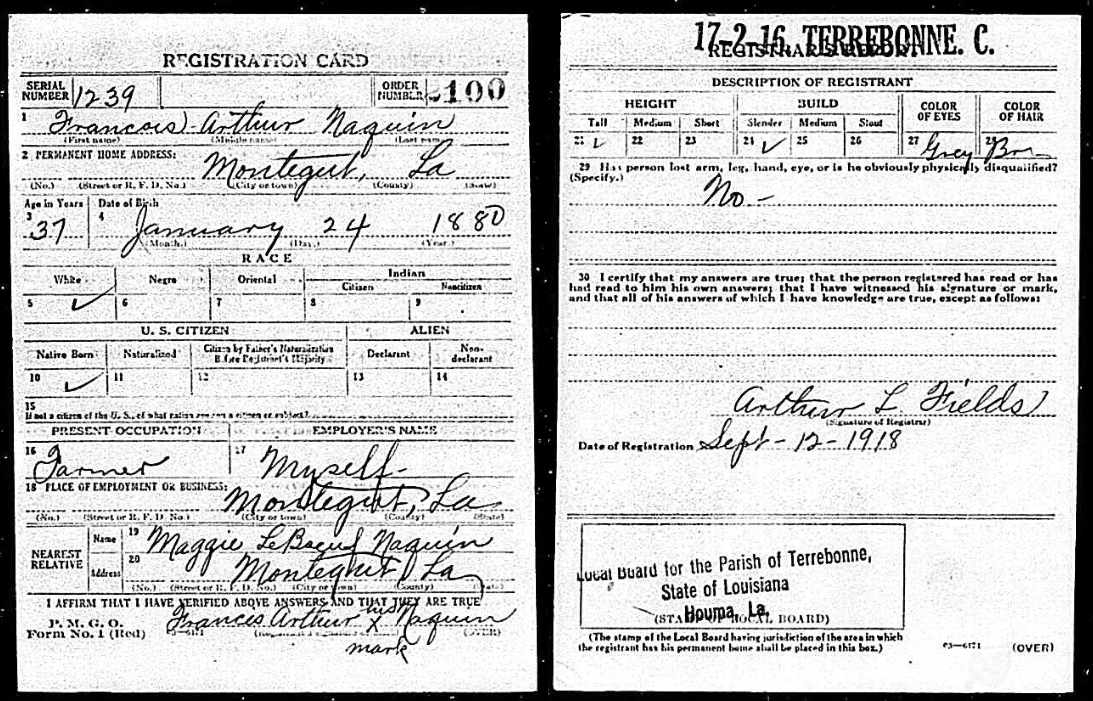 REGISTRATION CARD
SERIAL NUMBER 1239
ORDER NUMBER 100
1 Francois Arthur Naquin
(First name) (Middle name) (Last name)
2 PERMANENT HOME ADDRESS:
Montegut, La
(No.) (Street or R. F. D. No.) (City or town) (County) (State)
Age in Years Date of Birth
3 37 4 January 24 1880
(Month.) (Day.) (Year.)
RACE
White Negro Oriental Indian
Citizen Noncitizen
5 ✓ 6 7 8 9
U. S. CITIZEN ALIEN
Native Born Naturalized Citizen by Father's Naturalization Before Registrant's Majority Declarant Non-declarant
10 ✓ 11 12 13 14
15
If not a citizen of the U. S., of what nation are you a citizen or subject?
PRESENT OCCUPATION EMPLOYER'S NAME
16 Farmer 17 Myself-
18 PLACE OF EMPLOYMENT OR BUSINESS:
Montegut, La
(No.) (Street or R. F. D. No.) (City or town) (County) (State)
NEAREST RELATIVE
Name 19 Maggie Naquin
Address 20 Montegut, La
(No.) (Street or R. F. D. No.) (City or town) (County) (State)
I AFFIRM THAT I HAVE VERIFIED ABOVE ANSWERS AND THAT THEY ARE TRUE
P. M. G. O.
Form No. 1 (Red)
Francis Arthur his x mark Naquin
03—6171 (OVER)
17-2-16 TERREBONNE. C.
REGISTRAR'S REPORT
DESCRIPTION OF REGISTRANT
HEIGHT BUILD COLOR OF EYES COLOR OF HAIR
Tall Medium Short Slender Medium Stout
21 ✓ 22 23 24 ✓ 25 26 27 Grey 28 Brn
29 Has person lost arm, leg, hand, eye, or is he obviously physically disqualified?
(Specify.)
No -
30 I certify that my answers are true; that the person registered has read or has
had read to him his own answers; that I have witnessed his signature or mark,
and that all of his answers of which I have knowledge are true, except as follows:
Arthur L. Fields
(Signature of Registrar)
Date of Registration Sept-12-1918
Local Board for the Parish of Terrebonne,
State of Louisiana
Houma, La.
(STAMP OF LOCAL BOARD)
(The stamp of the Local Board having jurisdiction of the area in which
the registrant has his permanent home shall be placed in this box.)
03—6171 (OVER)